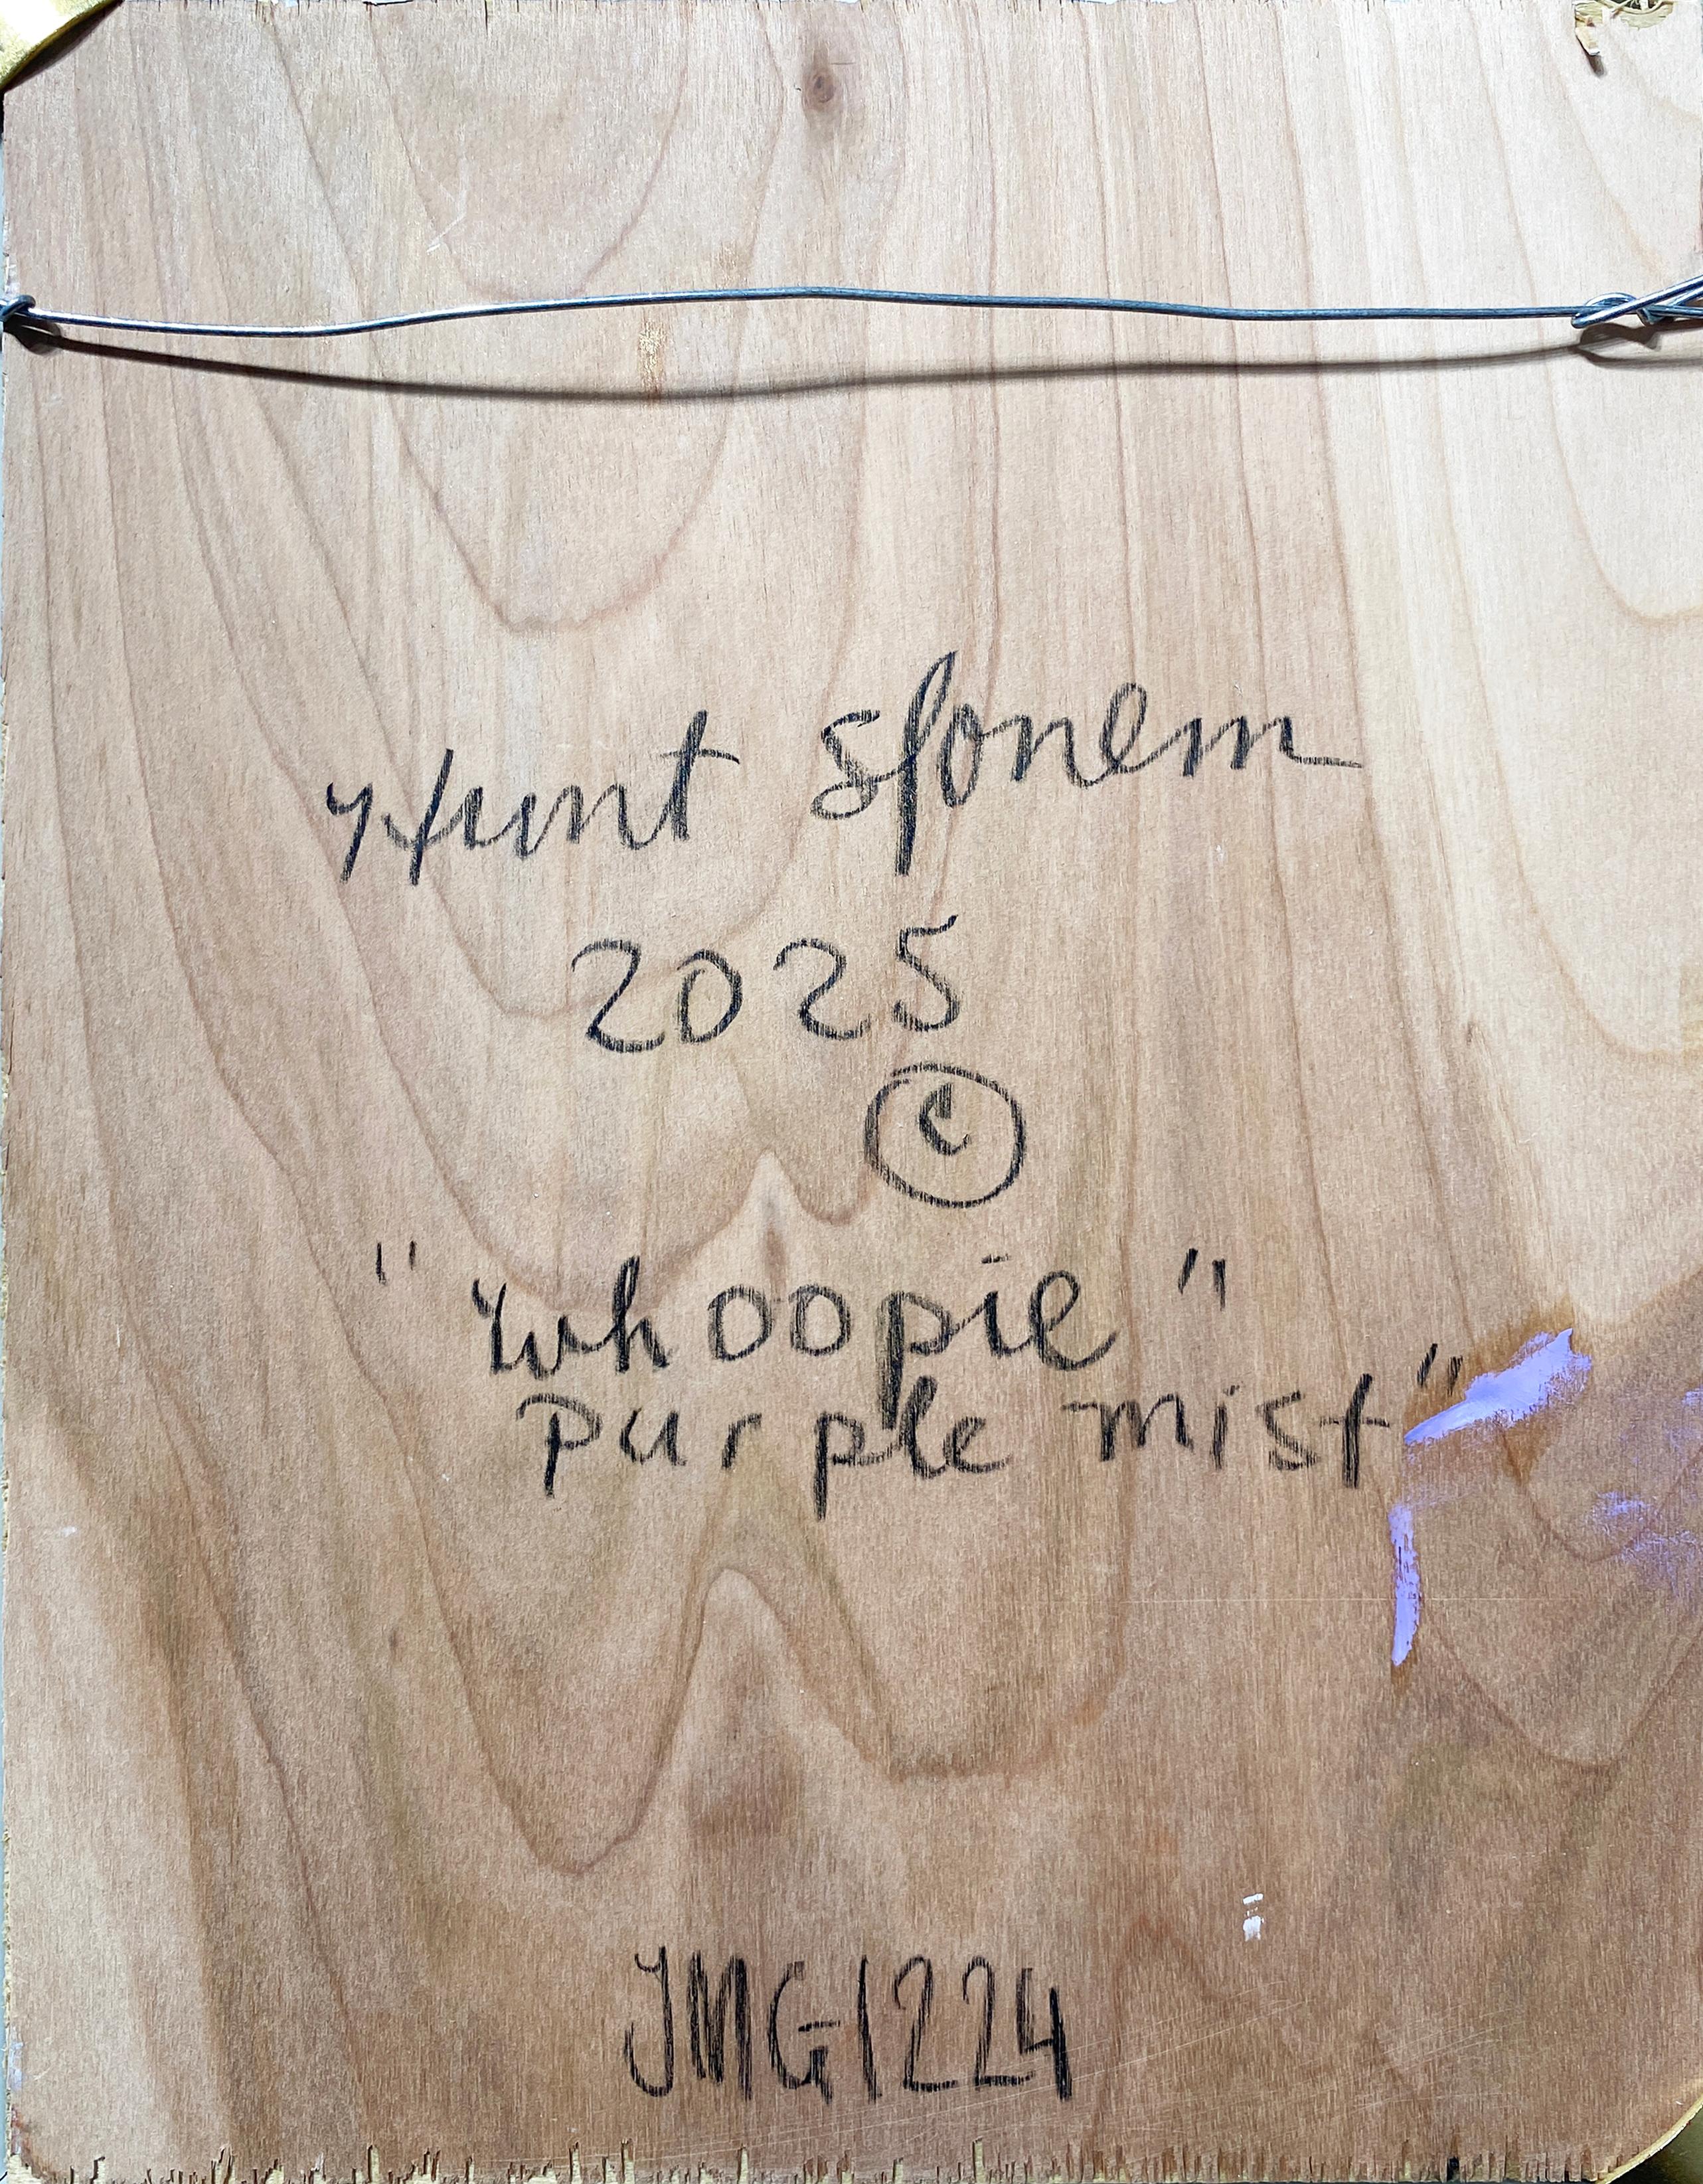 Hunt Slonem
2025
©
"Whoopie"
Purple mist"
JMG1224